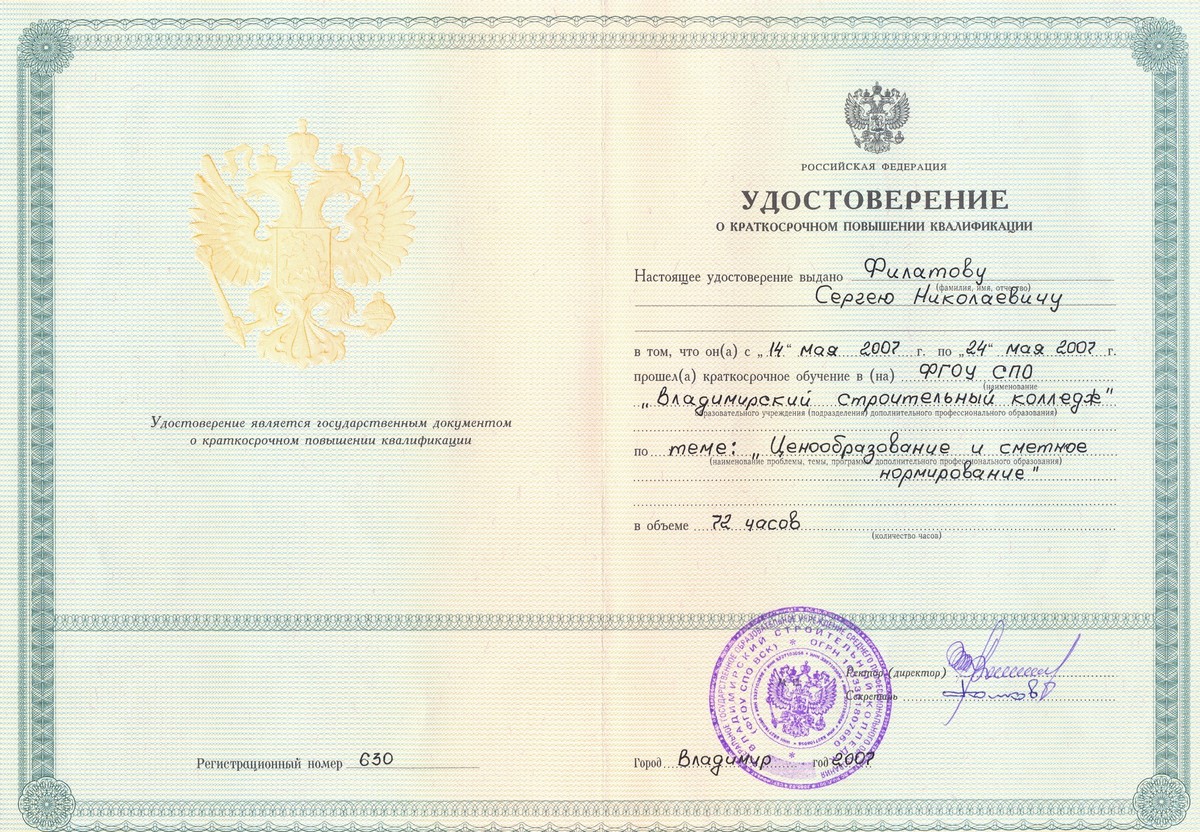 Удостоверение является государственным документом
о краткосрочном повышении квалификации
Регистрационный номер 630
РОССИЙСКАЯ ФЕДЕРАЦИЯ
УДОСТОВЕРЕНИЕ
О КРАТКОСРОЧНОМ ПОВЫШЕНИИ КВАЛИФИКАЦИИ
Настоящее удостоверение выдано Филатову
(фамилия, имя, отчество)
Сергею Николаевичу
в том, что он(а) с „14“ мая 2007 г. по „24“ мая 2007 г.
прошел(а) краткосрочное обучение в (на) ФГОУ СПО
(наименование
„Владимирский строительный колледж"
образовательного учреждения (подразделения) дополнительного профессионального образования)
по теме: „Ценообразование и сметное
(наименование проблемы, темы, программы дополнительного профессионального образования)
нормирование"
в объеме 72 часов
(количество часов)
Ректор (директор)
Секретарь
Город Владимир год 2007
ВЛАДИМИРСКИЙ СТРОИТЕЛЬНЫЙ КОЛЛЕДЖ
(ФГОУ СПО ВСК)
ОГРН